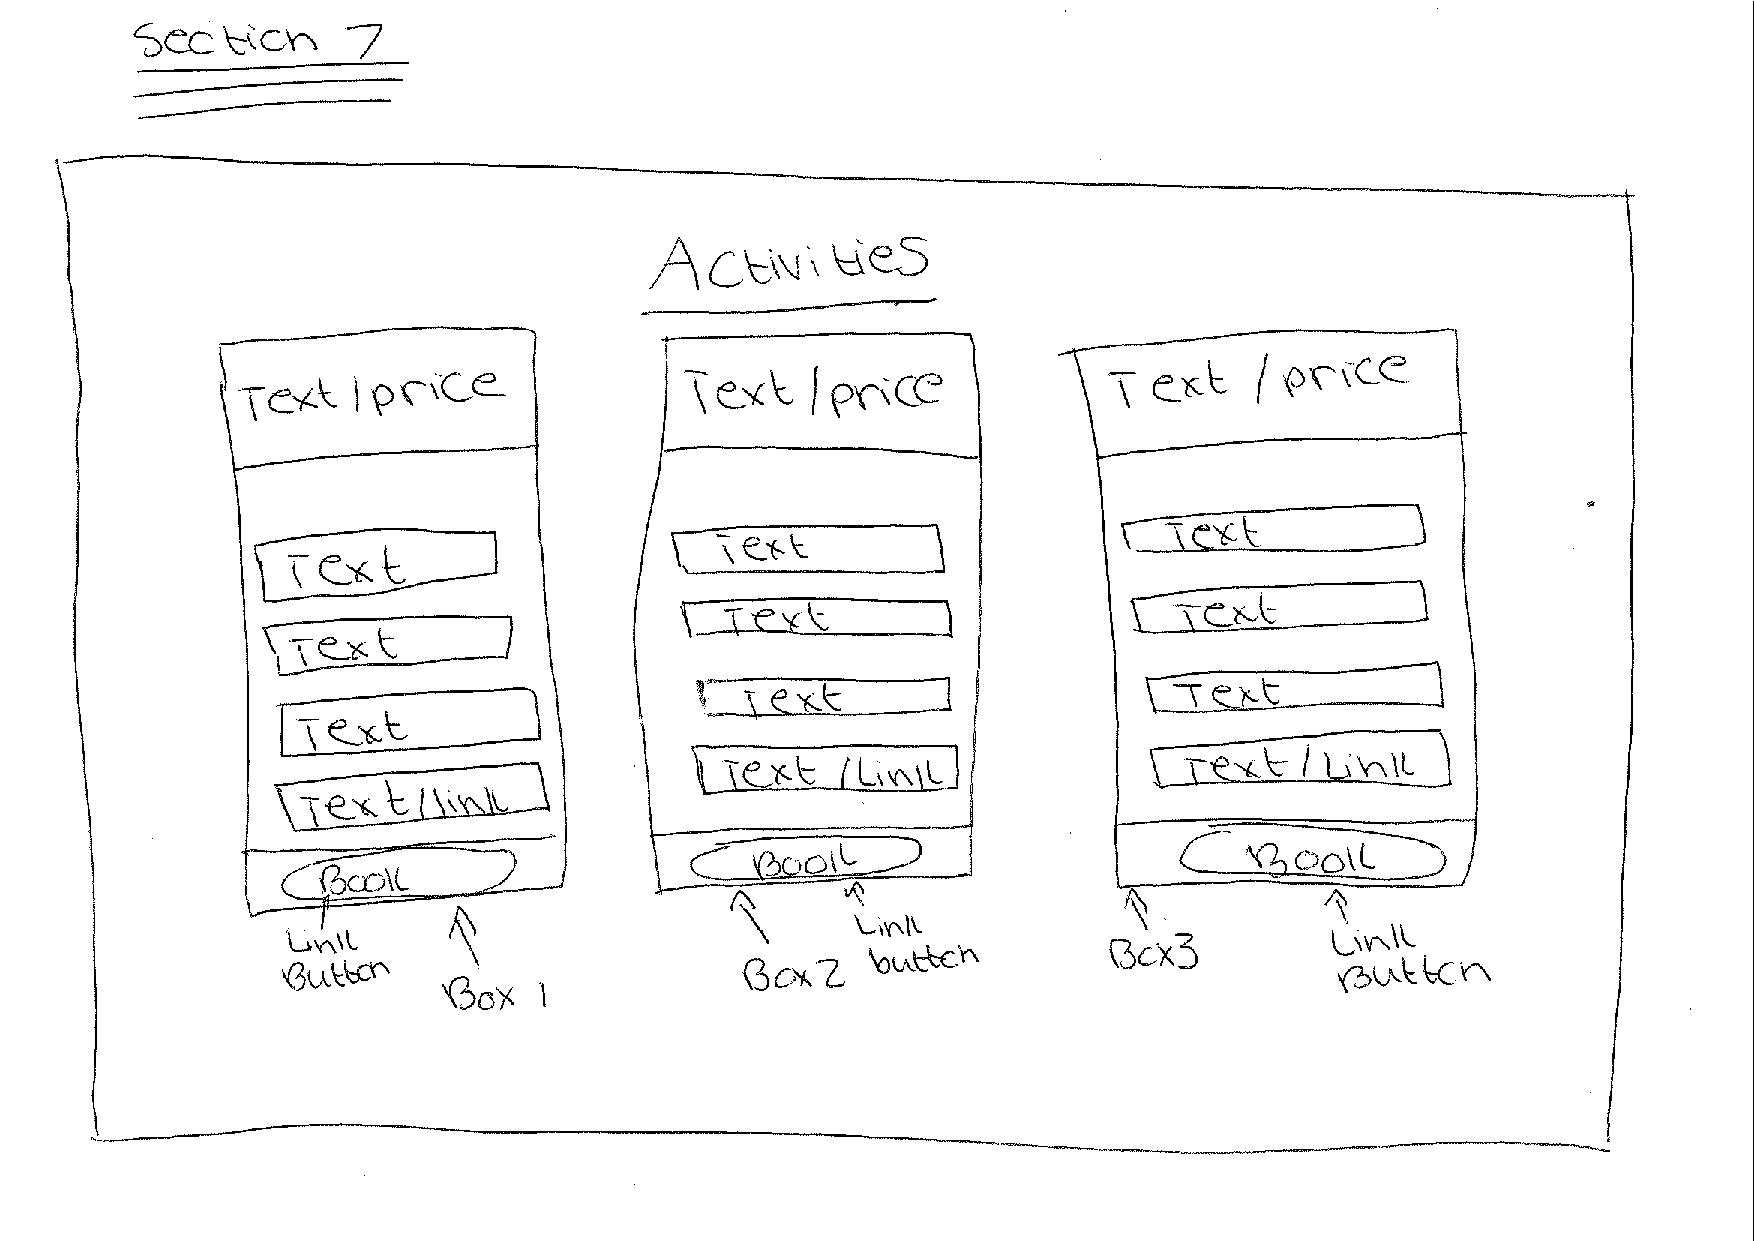 Section 7
Activities
Text/price
Text
Text
Text
Text/link
Book
Link
Button
Box 1
Text/price
Text
Text
Text
Text/Link
Book
Box 2
Link
button
Text/price
Text
Text
Text
Text/Link
Book
Box3
Link
Button